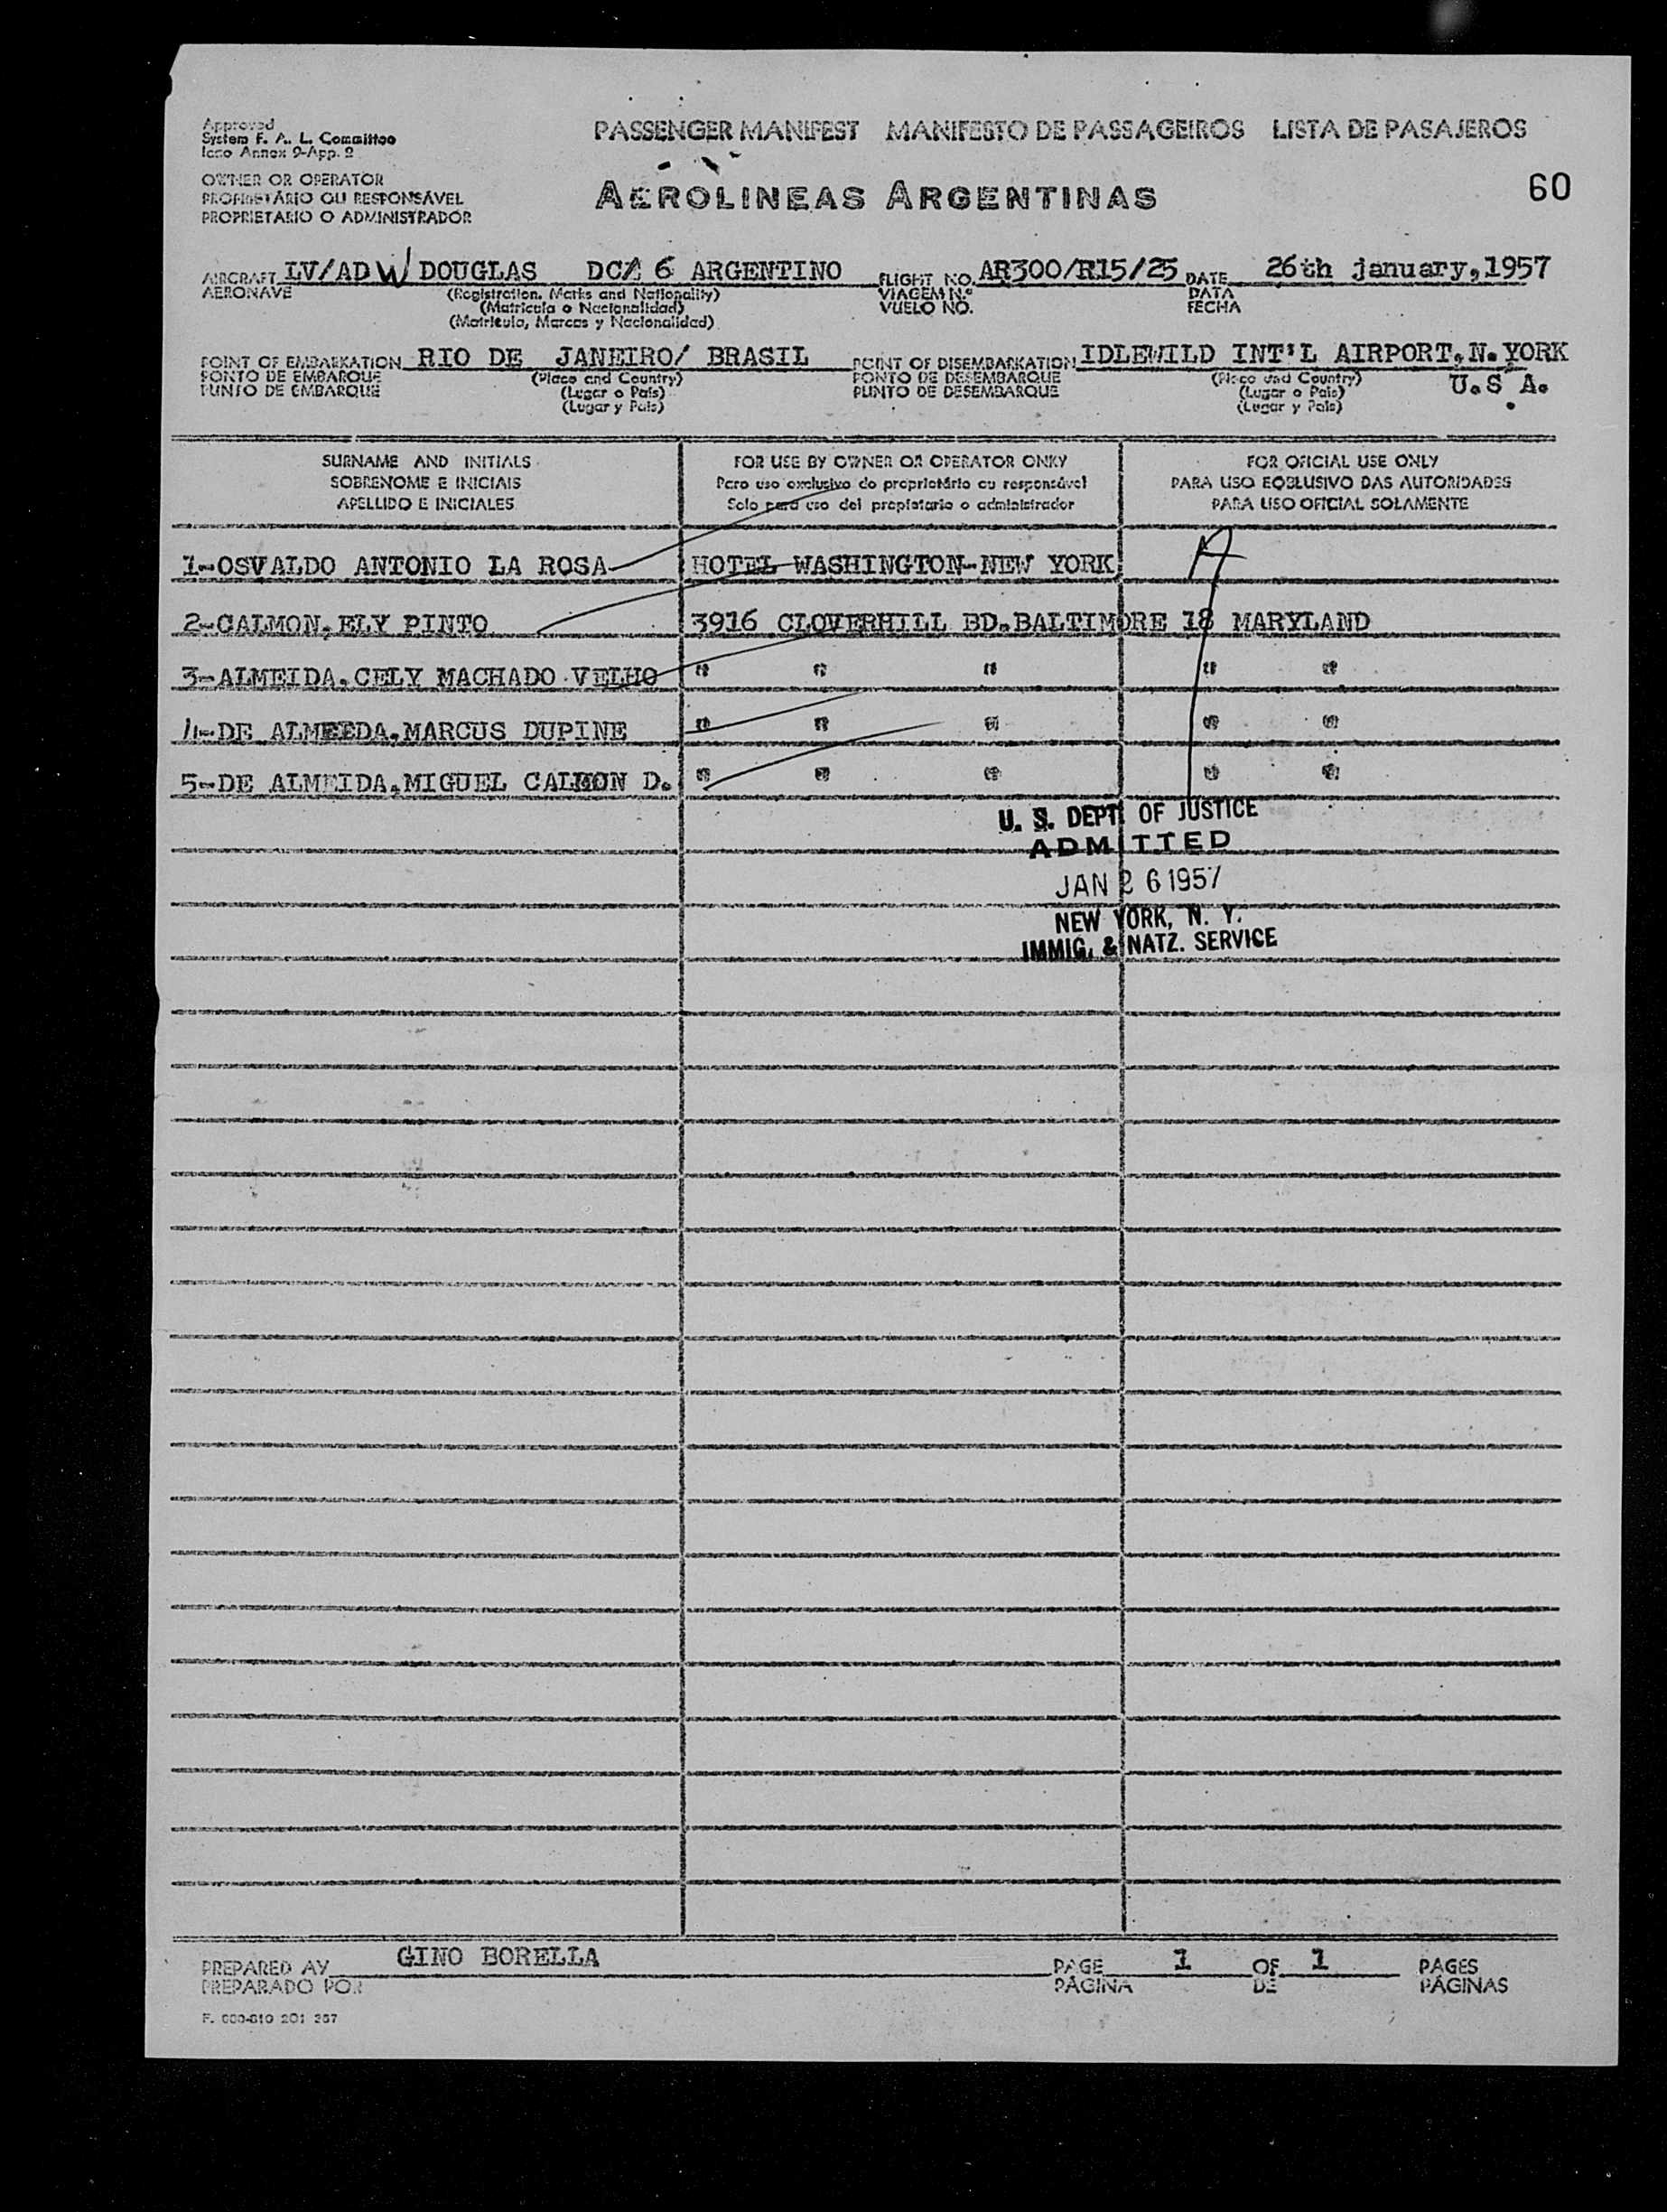 Approved
System F. A. L. Committee
Icao Annex 9-App. 2
PASSENGER MANIFEST MANIFESTO DE PASSAGEIROS LISTA DE PASAJEROS
OWNER OR OPERATOR
PROPRIETÁRIO OU RESPONSÁVEL
PROPRIETARIO O ADMINISTRADOR
AEROLINEAS ARGENTINAS
60
AIRCRAFT LV/ADW DOUGLAS DC/ 6 ARGENTINO FLIGHT NO. AR300/R15/25 DATE 26th january,1957
AERONAVE (Registration, Marks and Nationality) VIAGEM N.º DATA
(Matricula o Nacionalidad) VUELO NO. FECHA
(Matricula, Marcas y Nacionalidad)
POINT OF EMBARKATION RIO DE JANEIRO/ BRASIL POINT OF DISEMBARKATION IDLEWILD INT'L AIRPORT,N.YORK
PONTO DE EMBARQUE (Place and Country) PONTO DE DESEMBARQUE (Place and Country) U.S A.
PUNTO DE EMBARQUE (Lugar o Pais) PUNTO DE DESEMBARQUE (Lugar o Pais)
(Lugar y Pais) (Lugar y Pais)
SURNAME AND INITIALS FOR USE BY OWNER OR OPERATOR ONKY FOR OFICIAL USE ONLY
SOBRENOME E INICIAIS Para uso exclusivo do proprietário ou responsável PARA USO EQBLUSIVO DAS AUTORIDADES
APELLIDO E INICIALES Solo para uso del propietario o administrador PARA USO OFICIAL SOLAMENTE
1-OSVALDO ANTONIO LA ROSA HOTEL WASHINGTON-NEW YORK A
2-CALMON,ELY PINTO 3916 CLOVERHILL BD.BALTIMORE 18 MARYLAND
3-ALMEIDA,CELY MACHADO VELHO " " " " "
4-DE ALMEEDA,MARCUS DUPINE " " " " "
5-DE ALMEIDA,MIGUEL CALMON D. " " " " "
U. S. DEPT. OF JUSTICE
ADMITTED
JAN 26 1957
NEW YORK, N. Y.
IMMIG. & NATZ. SERVICE
PREPARED AY GINO BORELLA PAGE 1 OF 1 PAGES
PREPARADO POR PÁGINA DE PÁGINAS